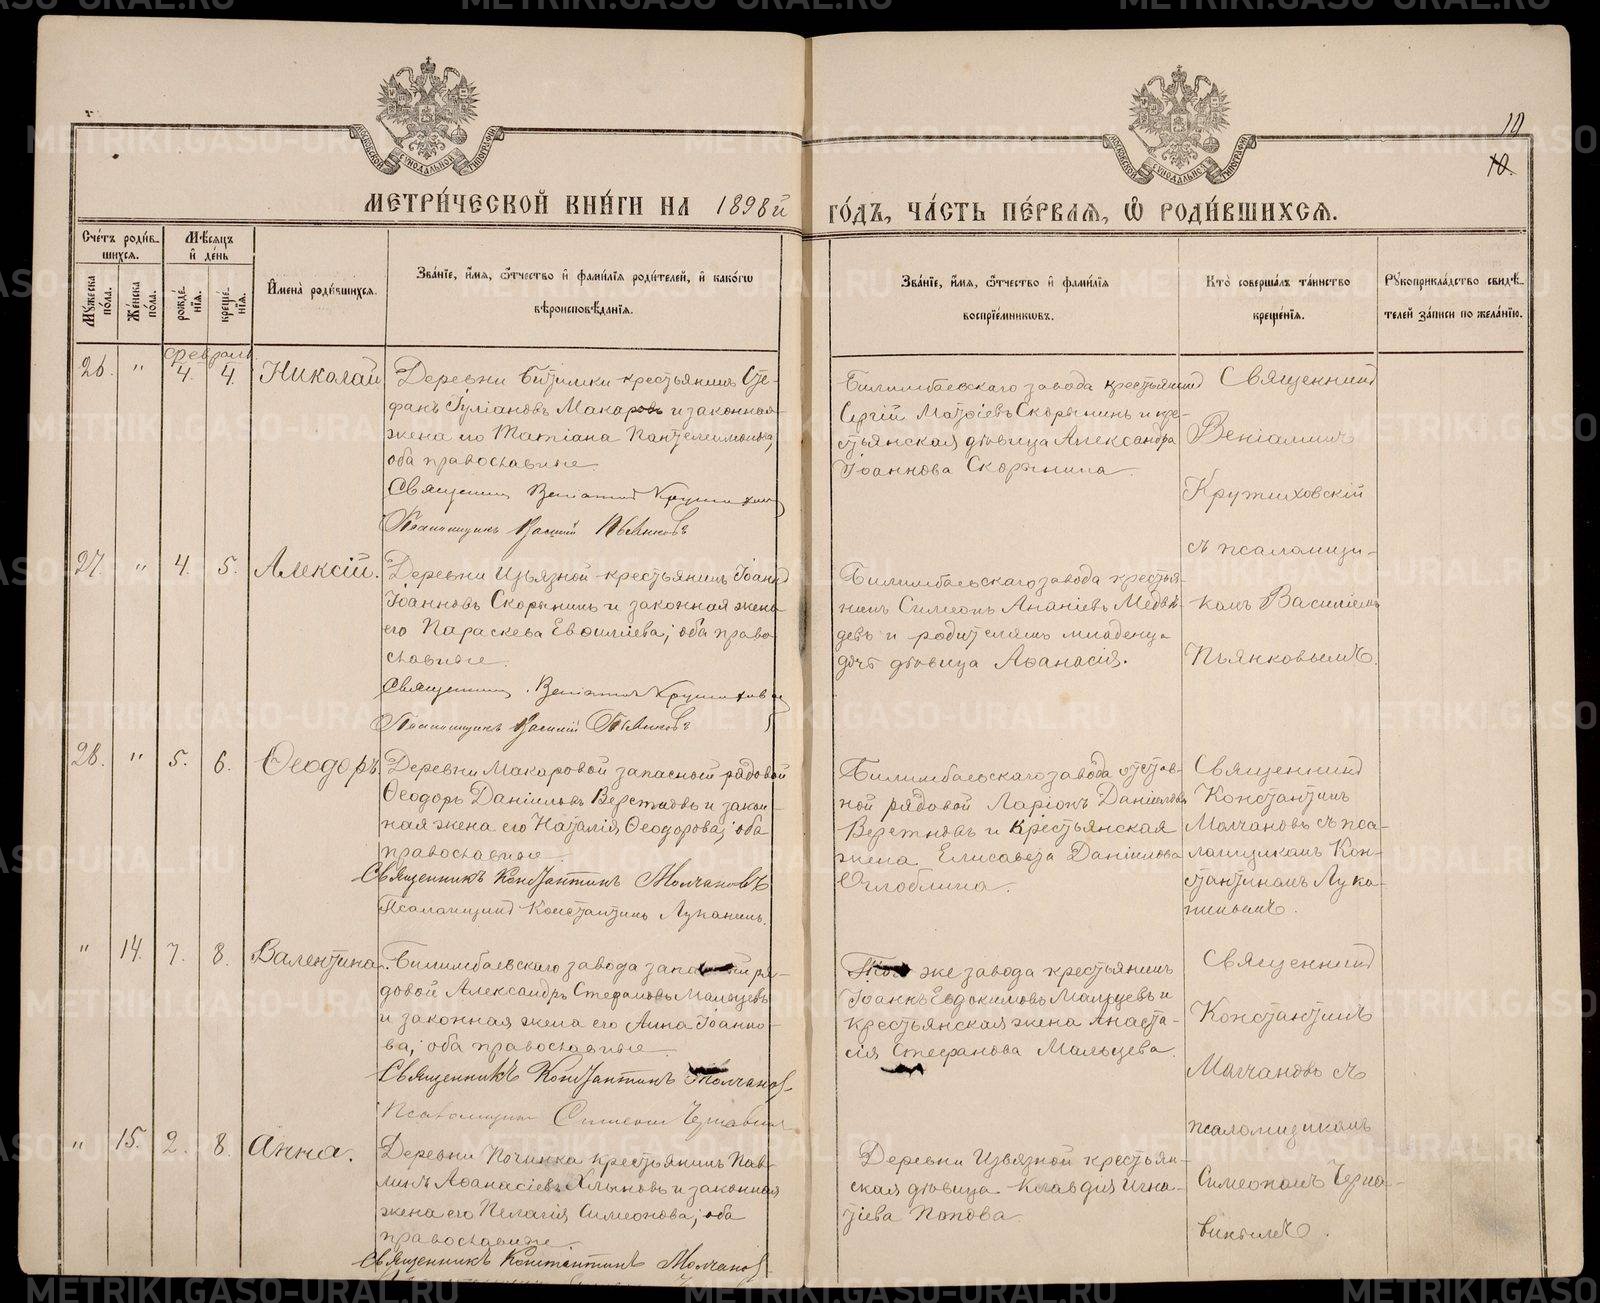 МЕТРИ́ЧЕСКОЙ КНИ́ГИ НА 1898й
ГО́ДЪ, ЧА́СТЬ ПЕ́РВАѦ, Ѿ РОДИ́ВШИХСѦ.
10
10.
Сче́тъ роди́в-
шихсѧ.
Мѣ́сѧцъ
и҆ де́нь
Мꙋ́жеска
по́ла.
Же́нска
по́ла.
рожде́-
нїѧ.
креще́-
нїѧ.
И҆мена̀ роди́вшихсѧ.
Зва́нїе, и҆́мѧ, ѻ҆́тчество и҆ фами́лїѧ роди́телей, и҆ како́гѡ
вѣроисповѣ́данїѧ.
Зва́нїе, и҆́мѧ, ѻ҆́тчество и҆ фами́лїѧ
воспрїе́мникѡвъ.
Кто̀ соверша́лъ та́инство
креще́нїѧ.
Рꙋкоприкла́дство свидѣ́-
телей за́писи по жела́нїю.
Февраль.
26. " 4. 4. Николай
Деревни Битимки крестьянинъ Сте-
фанъ Іуліановъ Макаровъ и законная
жена его Татіана Пантелеимонова,
оба православные.
Священникъ Веніаминъ
Псаломщикъ Василій Пьянковъ
Билимбаевскаго завода крестьянинъ
Сергій Матѳіевъ Скорынинъ и кре-
стьянская дѣвица Александра
Іоаннова Скорынина.
Священникъ
Веніаминъ
Кружиховскій
съ псаломщи-
комъ Василіемъ
Пьянковымъ.
27. " 4. 5. Алексій.
Деревни Извязной крестьянинъ Іоаннъ
Іоанновъ Скорынинъ и законная жена
его Параскева Евѳиміева; оба право-
славные.
Священникъ Веніаминъ
Псаломщикъ Василій Пьянковъ
Билимбаевскаго завода крестья-
нинъ Симеонъ Ананіевъ Медвѣ-
девъ и родителямъ младенца
дочь дѣвица Аѳанасія.
28. " 5. 6. Ѳеодоръ.
Деревни Макаровой запасной рядовой
Ѳеодоръ Даніиловъ и закон-
ная жена его Наталія Ѳеодорова; оба
православные.
Священникъ Константинъ Молчановъ
Псаломщикъ Константинъ Луканинъ.
Билимбаевскаго завода отстав-
ной рядовой Ларіонъ Даніиловъ
и крестьянская
жена Елисавета Даніилова
Оглоблина.
Священникъ
Константинъ
Молчановъ съ пса-
ломщикомъ Кон-
стантиномъ Лука-
нинымъ.
" 14. 7. 8. Валентина.
Билимбаевскаго завода запасный ря-
довой Александръ Стефановъ Мальцевъ
и законная жена его Анна Іоанно-
ва; оба православные.
Священникъ Константинъ Молчановъ
Псаломщикъ Симеонъ Чернавинъ
Того же завода крестьянинъ
Іоаннъ Евдокимовъ Мальцевъ и
крестьянская жена Анаста-
сія Стефанова Мальцева.
Священникъ
Константинъ
Молчановъ съ
псаломщикомъ
Симеономъ Черна-
винымъ.
" 15. 2. 8. Анна.
Деревни Починка крестьянинъ Пав-
линъ Аѳанасіевъ Хлыновъ и законная
жена его Пелагія Симеонова; оба
православные.
Священникъ Константинъ Молчановъ
Деревни Извязной крестьян-
ская дѣвица Клавдія Игна-
тіева Попова.
METRIKI.GASO-URAL.RU